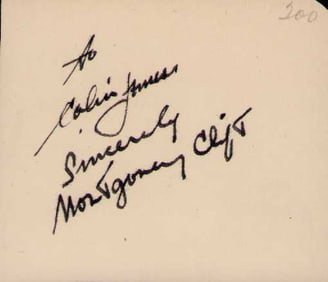 200
To
Colin James
Sincerely
Montgomery Clift